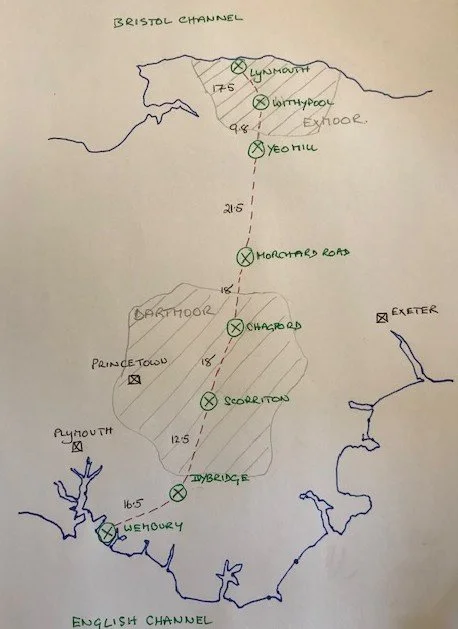 BRISTOL CHANNEL
LYNMOUTH
17.5
WITHYPOOL
EXMOOR.
9.8
YEOMILL
21.5
MORCHARD ROAD
18
DARTMOOR
CHAGFORD
EXETER
PRINCETOWN
18
SCORRITON
PLYMOUTH
12.5
IVYBRIDGE
16.5
WEMBURY
ENGLISH CHANNEL